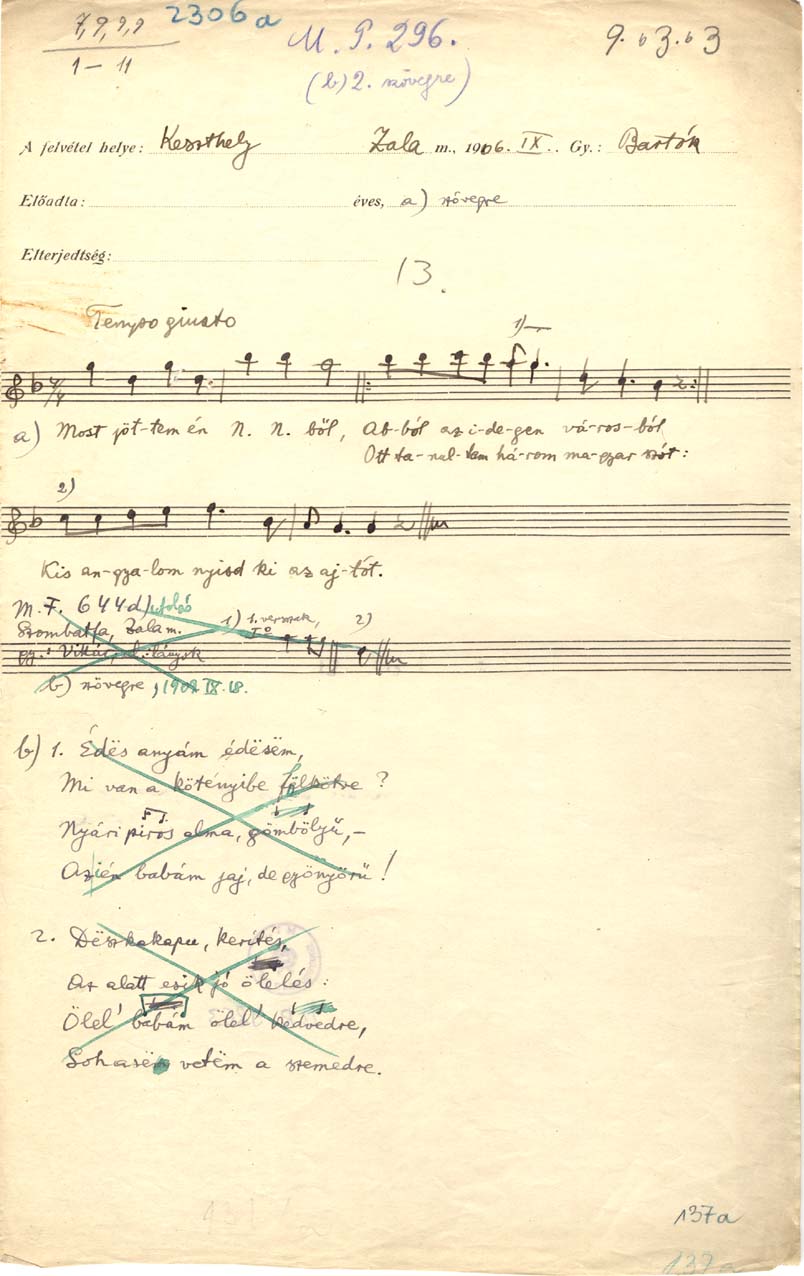 7, 9, 9, 9 2306a
1 – 11
M. F. 296. 9.ь3.ь3
(b) 2. szövegre)
A felvétel helye: Keszthely Zala m., 1906. IX. Gy.: Bartók
Előadta: éves, a) szövegre
Elterjedtség:
13.
Tempo giusto
1)
a) Most jöt-tem én N. N. ből, Ab-ból az i-de-gen vá-ros-ból,
Ott ta-nul-tam há-rom ma-gyar szót:
2)
Kis an-gya-lom nyisd ki az aj-tót.
M. F. 644d) utolsó
Szombatfa, Zala m. 1) 1. versszak, 2)
gy.: Vikár, lányok
b) szövegre, 1907 IX. 18.
b) 1. Édës anyám édësëm,
Mi van a kötényibe fölkötve ?
Nyári piros alma, gömbölyű, –
Az én babám jaj, de gyönyörű !
2. Dëszkakapu, kerítés,
Az alatt esik jó ölelés :
Ölel' babám ölel' kedvedre,
Sohasëm vetëm a szemedre.
137a
137a